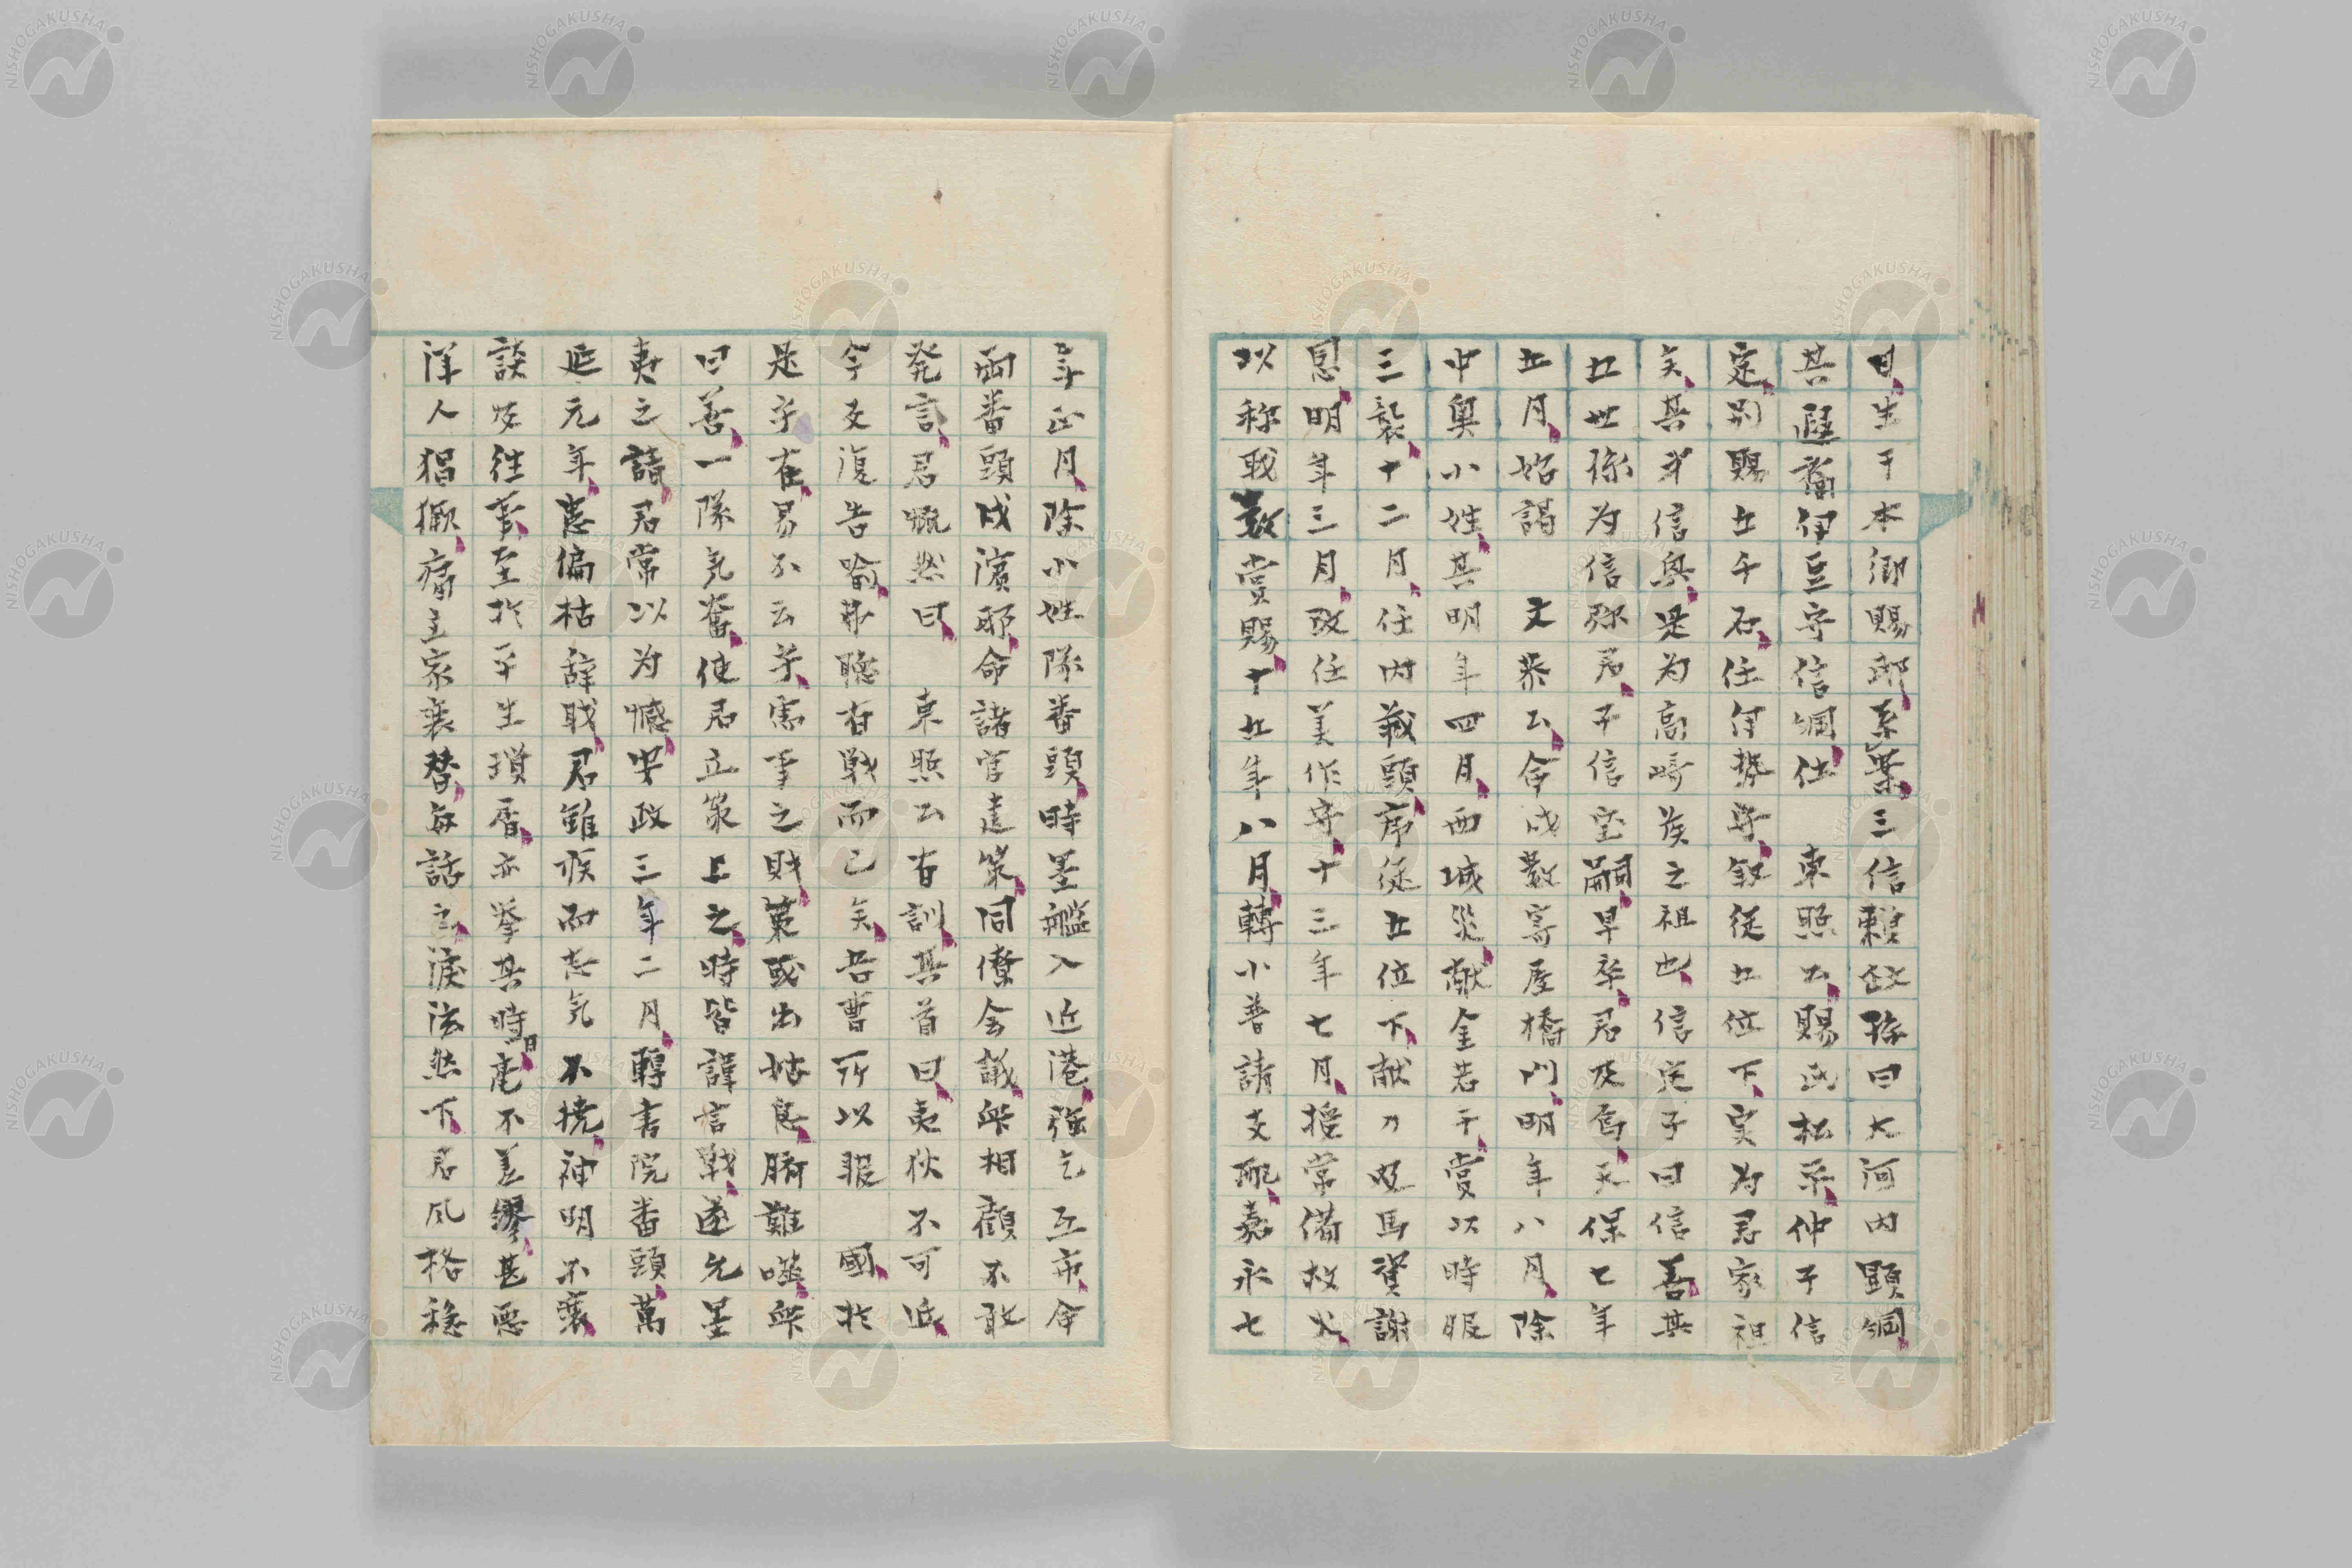 日生于本郷賜邸系案三信頼玄孫曰大河内顕綱
其遠裔伊豆守信綱仕 東照公賜氏松平仲子信
定別賜五千石任伊勢守叙従五位下実為君家祖
矣其弟信興是為高崎侯之祖也信定子曰信善其
五世孫為信弥君子信宝嗣早卒君及為天保七年
五月始謁 文恭公命戍数寄屋橋門明年八月除
中奥小姓其明年四月西城災献金若干賞以時服
三襲十二月任内蔵頭序従五位下献刀及馬資謝
恩明年三月改任美作守十三年七月授常備救火
以称職数賞賜十五年八月轉小普請支配嘉永七
年正月除小姓隊番頭時墨艦入近港強乞互市命
両番頭戍濱邸命諸官建策同僚会議衆相顧不敢
発言君慨然曰 東照公有訓其首曰夷狄不可近
今反復告喩弗聴有戦而已矣吾曹所以報 國於
是乎在易不云乎害事之賊策或出姑息臍難噬衆
曰善一隊気奮使君立策上之時皆諱言戦遂允墨
夷之請君常以為憾安政三年二月轉書院番頭萬
延元年患偏枯辞職君雖疾而志気不撓神明不衰
談及往事至於平生瑣屑亦挙其時日毫不差繆甚悪
洋人猖獗痛主家衰替毎話之涙泫然下君風格穏